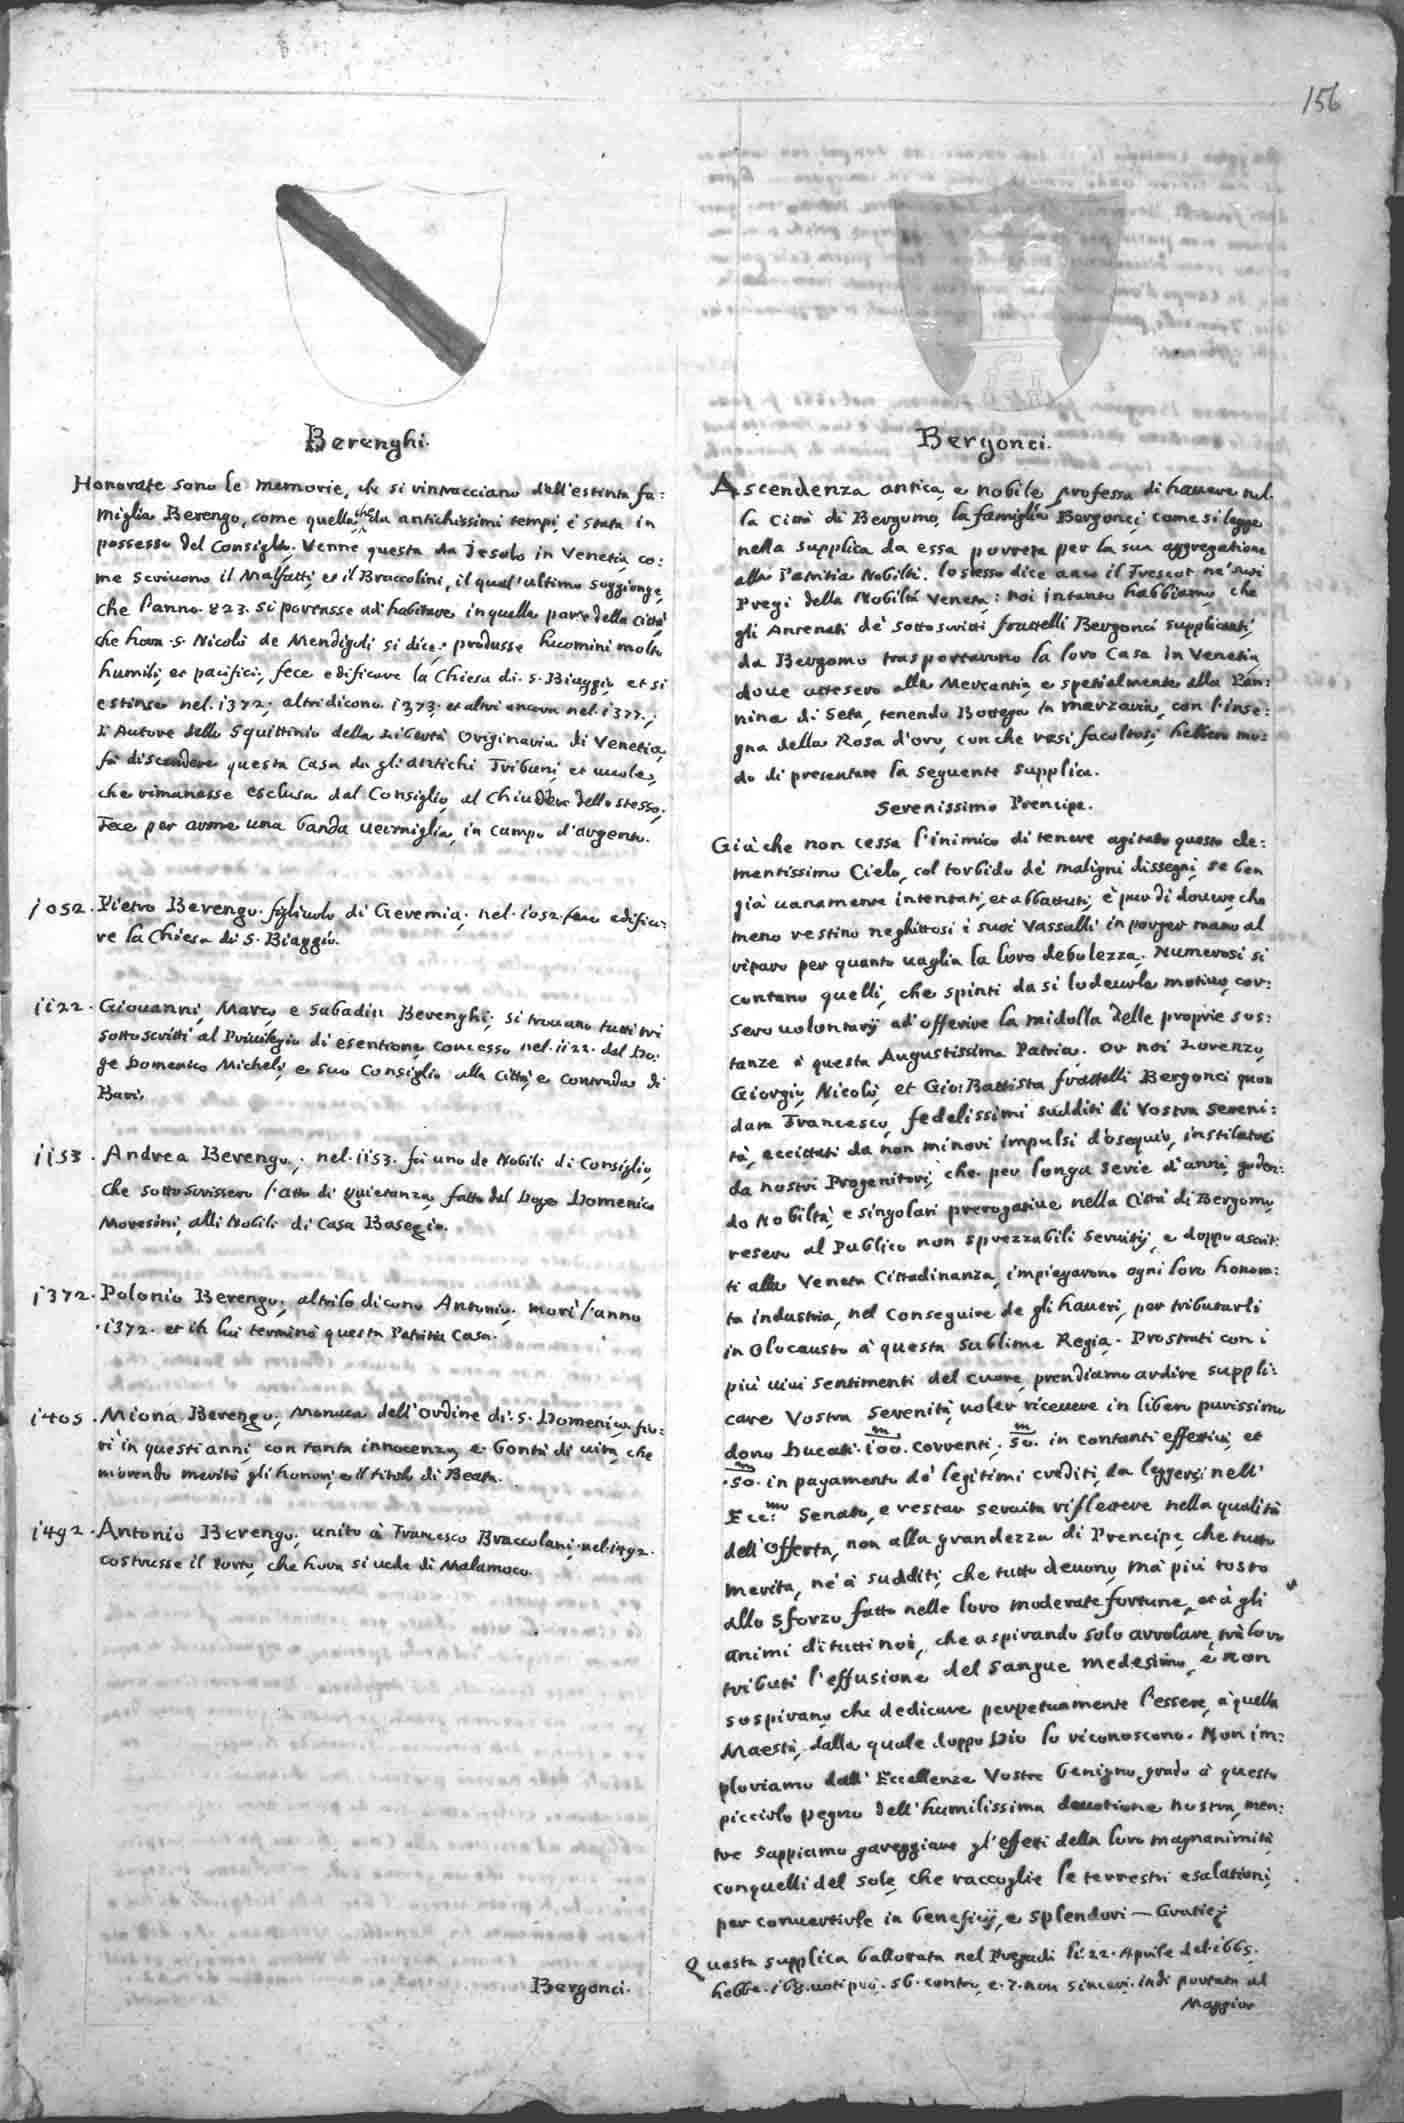 156
Berenghi.
Honorate sono le memorie, che si rintracciano dell'estinta fa:
miglia Berengo, come quella, che da antichissimi tempi è stata in
possesso del Consiglio. Venne questa da Jesolo in Venetia, co:
me scrivono il Malfatti, et il Braccolini, il qual'ultimo soggionge,
che l'anno .823. si portasse ad habitare in quella parte della Città,
che hora .S. Nicolò de Mendigoli si dice: produsse huomini molto
humili, et pacifici, fece edificare la Chiesa di .S. Biaggio, et si
estinse nel .1372; altri dicono 1373. et altri ancora nel .1377.;
L'Autore dello Squittinio della Libertà Originaria di Venetia,
fà discendere questa Casa da gli antichi Tribuni, et vuole,
che rimanesse esclusa dal Consiglio, al Chiudere dello stesso,
Fece per arme una banda vermiglia, in campo d'argento.
1052. Pietro Berengo figliuolo di Gieremia, nel .1052. fece edifica:
re la Chiesa di S. Biaggio.
1122. Giovanni, Marco, e Sabadin Berenghi, si trovano tutti tri
sottoscritti al Privilegio di esentione, concesso nel .1122. dal Do:
ge Domenico Micheli, e suo Consiglio alla Città, e Contrada di
Bari.
1153. Andrea Berengo, nel .1153. fù uno de Nobili di Consiglio,
che sottoscrissero l'atto di Quietanza, fatto dal Doge Domenico
Moresini, alli Nobili di Casa Basegio.
1372. Polonio Berengo, altri lo dicono Antonio, morì l'anno
.1372. et in lui terminò questa Patritia Casa.
1405. Miona Berengo, Monaca dell'Ordine di .S. Domenico, fio:
rì in questi anni, con tanta innocenza, e bontà di vita, che
morendo meritò gli honori, e il titolo di Beata.
1492. Antonio Berengo, unito à Francesco Braccolani, nel .1492.
costrusse il porto, che hora si vede di Malamoco.
Bergonci.
Bergonci.
Ascendenza antica, e nobile professa di havere nel
la Città di Bergomo, la famiglia Bergonci, come si legge
nella supplica da essa porreta per la sua aggregatione
alla Patritia Nobiltà. lo stesso dice anco il Frescot ne' suoi
Pregi della Nobiltà Veneta: noi intanto habbiamo, che
gli Antenati de' sottoscritti fratelli Bergonci supplicanti,
da Bergomo trasportarono la loro Casa in Venetia,
dove attesero alla Mercantia, e spetialmente alla Pan:
nina di Seta, tenendo Bottega in marzaria, con l'inse:
gna della Rosa d'oro, con che resi facoltosi, hebbero mo:
do di presentare la seguente supplica.
Serenissimo Prencipe.
Già che non cessa l'inimico di tenere agitato questo cle:
mentissimo Cielo, col torbido de' maligni dissegni, se ben
già vanamente intentati, et abbattuti, è pur di dovere, che
meno restino neghittosi i suoi Vassalli in porger mano al
riparo per quanto vaglia la loro debolezza. Numerosi si
contano quelli, che spinti da sì lodevole motivo, cor:
sero volontarij ad'offerire la midolla delle proprie sos:
tanze à questa Augustissima Patria. Or noi Lorenzo,
Giorgio, Nicolò, et Gio: Battista fratelli Bergonci quon
dam Francesco, fedelissimi sudditi di Vostra Sereni:
tà, eccittati da non minori impulsi d'osequio, instilatici
da nostri Progenitori, che per longa serie d'anni goden:
do Nobiltà, e singolari prerogative nella Città di Bergomo,
resero al Publico non sprezzabili servitij, e doppo ascrit:
ti alla Veneta Cittadinanza, impiegarono ogni loro honora:
ta industria, nel conseguire de gli haveri, per tributarli
in Olocausto à questa sublime Regia. Prostrati con i
più vivi sentimenti del cuore, prendiamo ardire suppli:
care Vostra Serenità, voler ricevere in libero purissimo
dono Ducati .100.m correnti, .50.m in contanti effettivi, et
.50.m in pagamento de' legitimi crediti, da leggersi nell'
Ecc:mo Senato, e restar servita riflettere nella qualità
dell'Offerta, non alla grandezza di Prencipe, che tutto
merita, ne' à sudditi, che tutto devono, mà più tosto
allo sforzo fatto nelle loro moderate fortune, et à gli
animi di tutti noi, che aspirando solo avvolare, trà loro
tributi l'effusione del sangue medesimo, e non
sospirano, che dedicare perpetuamente l'essere, à quella
Maestà, dalla quale doppo Dio lo riconoscono. Non im:
ploriamo dall'Eccellenze Vostre benigno grado à questo
picciolo pegno dell'humilissima devotione nostra, men:
tre sappiamo gareggiare gl'effetti della loro magnanimità
con quelli del sole, che raccoglie le terrestri esalationi,
per convertirle in beneficij, e splendori — Gratie;
Questa supplica ballottata nel Pregadi li .22. Aprile del .1665.
hebbe .168. voti prò .56. contro, e .7. non sinceri. indi portata al
Maggior